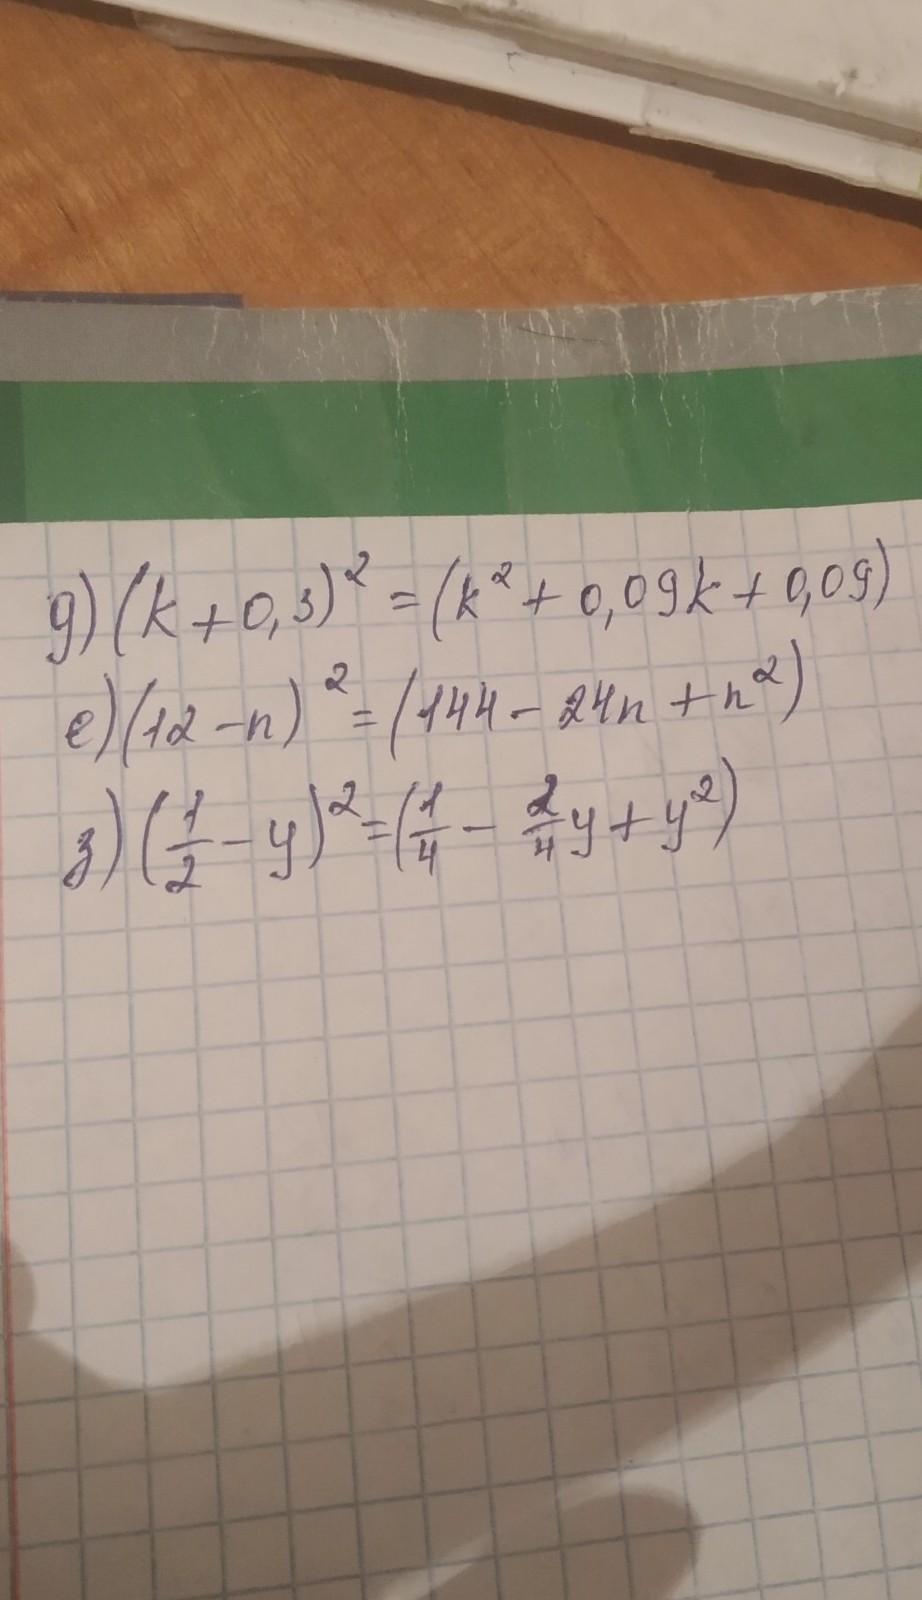 д) (k + 0,3)² = (k² + 0,09k + 0,09)
е) (12 - n)² = (144 - 24n + n²)
з) (1/2 - y)² = (1/4 - 2/4y + y²)